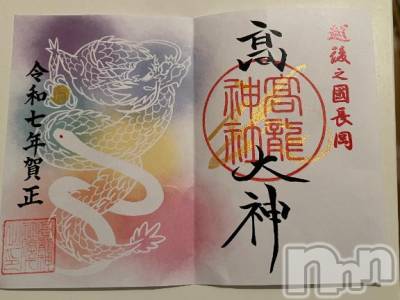 越後之國長岡
高大神
高龍神社
令和七年賀正
nnn